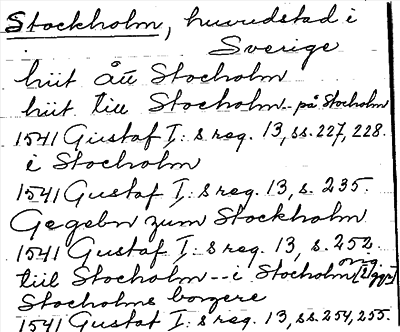 Stockholm, huvudstad i
Sverige
hiit ått Stocholm
hiit till Stocholm - på Stocholm
1541 Gustaf I:s reg. 13, ss. 227, 228.
i Stocholm
1541 Gustaf I:s reg. 13, s. 235.
Gegebn zum Stockholm
1541 Gustaf I:s reg. 13, s. 252.
tiil Stocholm -- i Stocholm orig. (2 ggr)
Stocholms borgere
1541 Gustaf I:s reg. 13, ss. 254, 255.